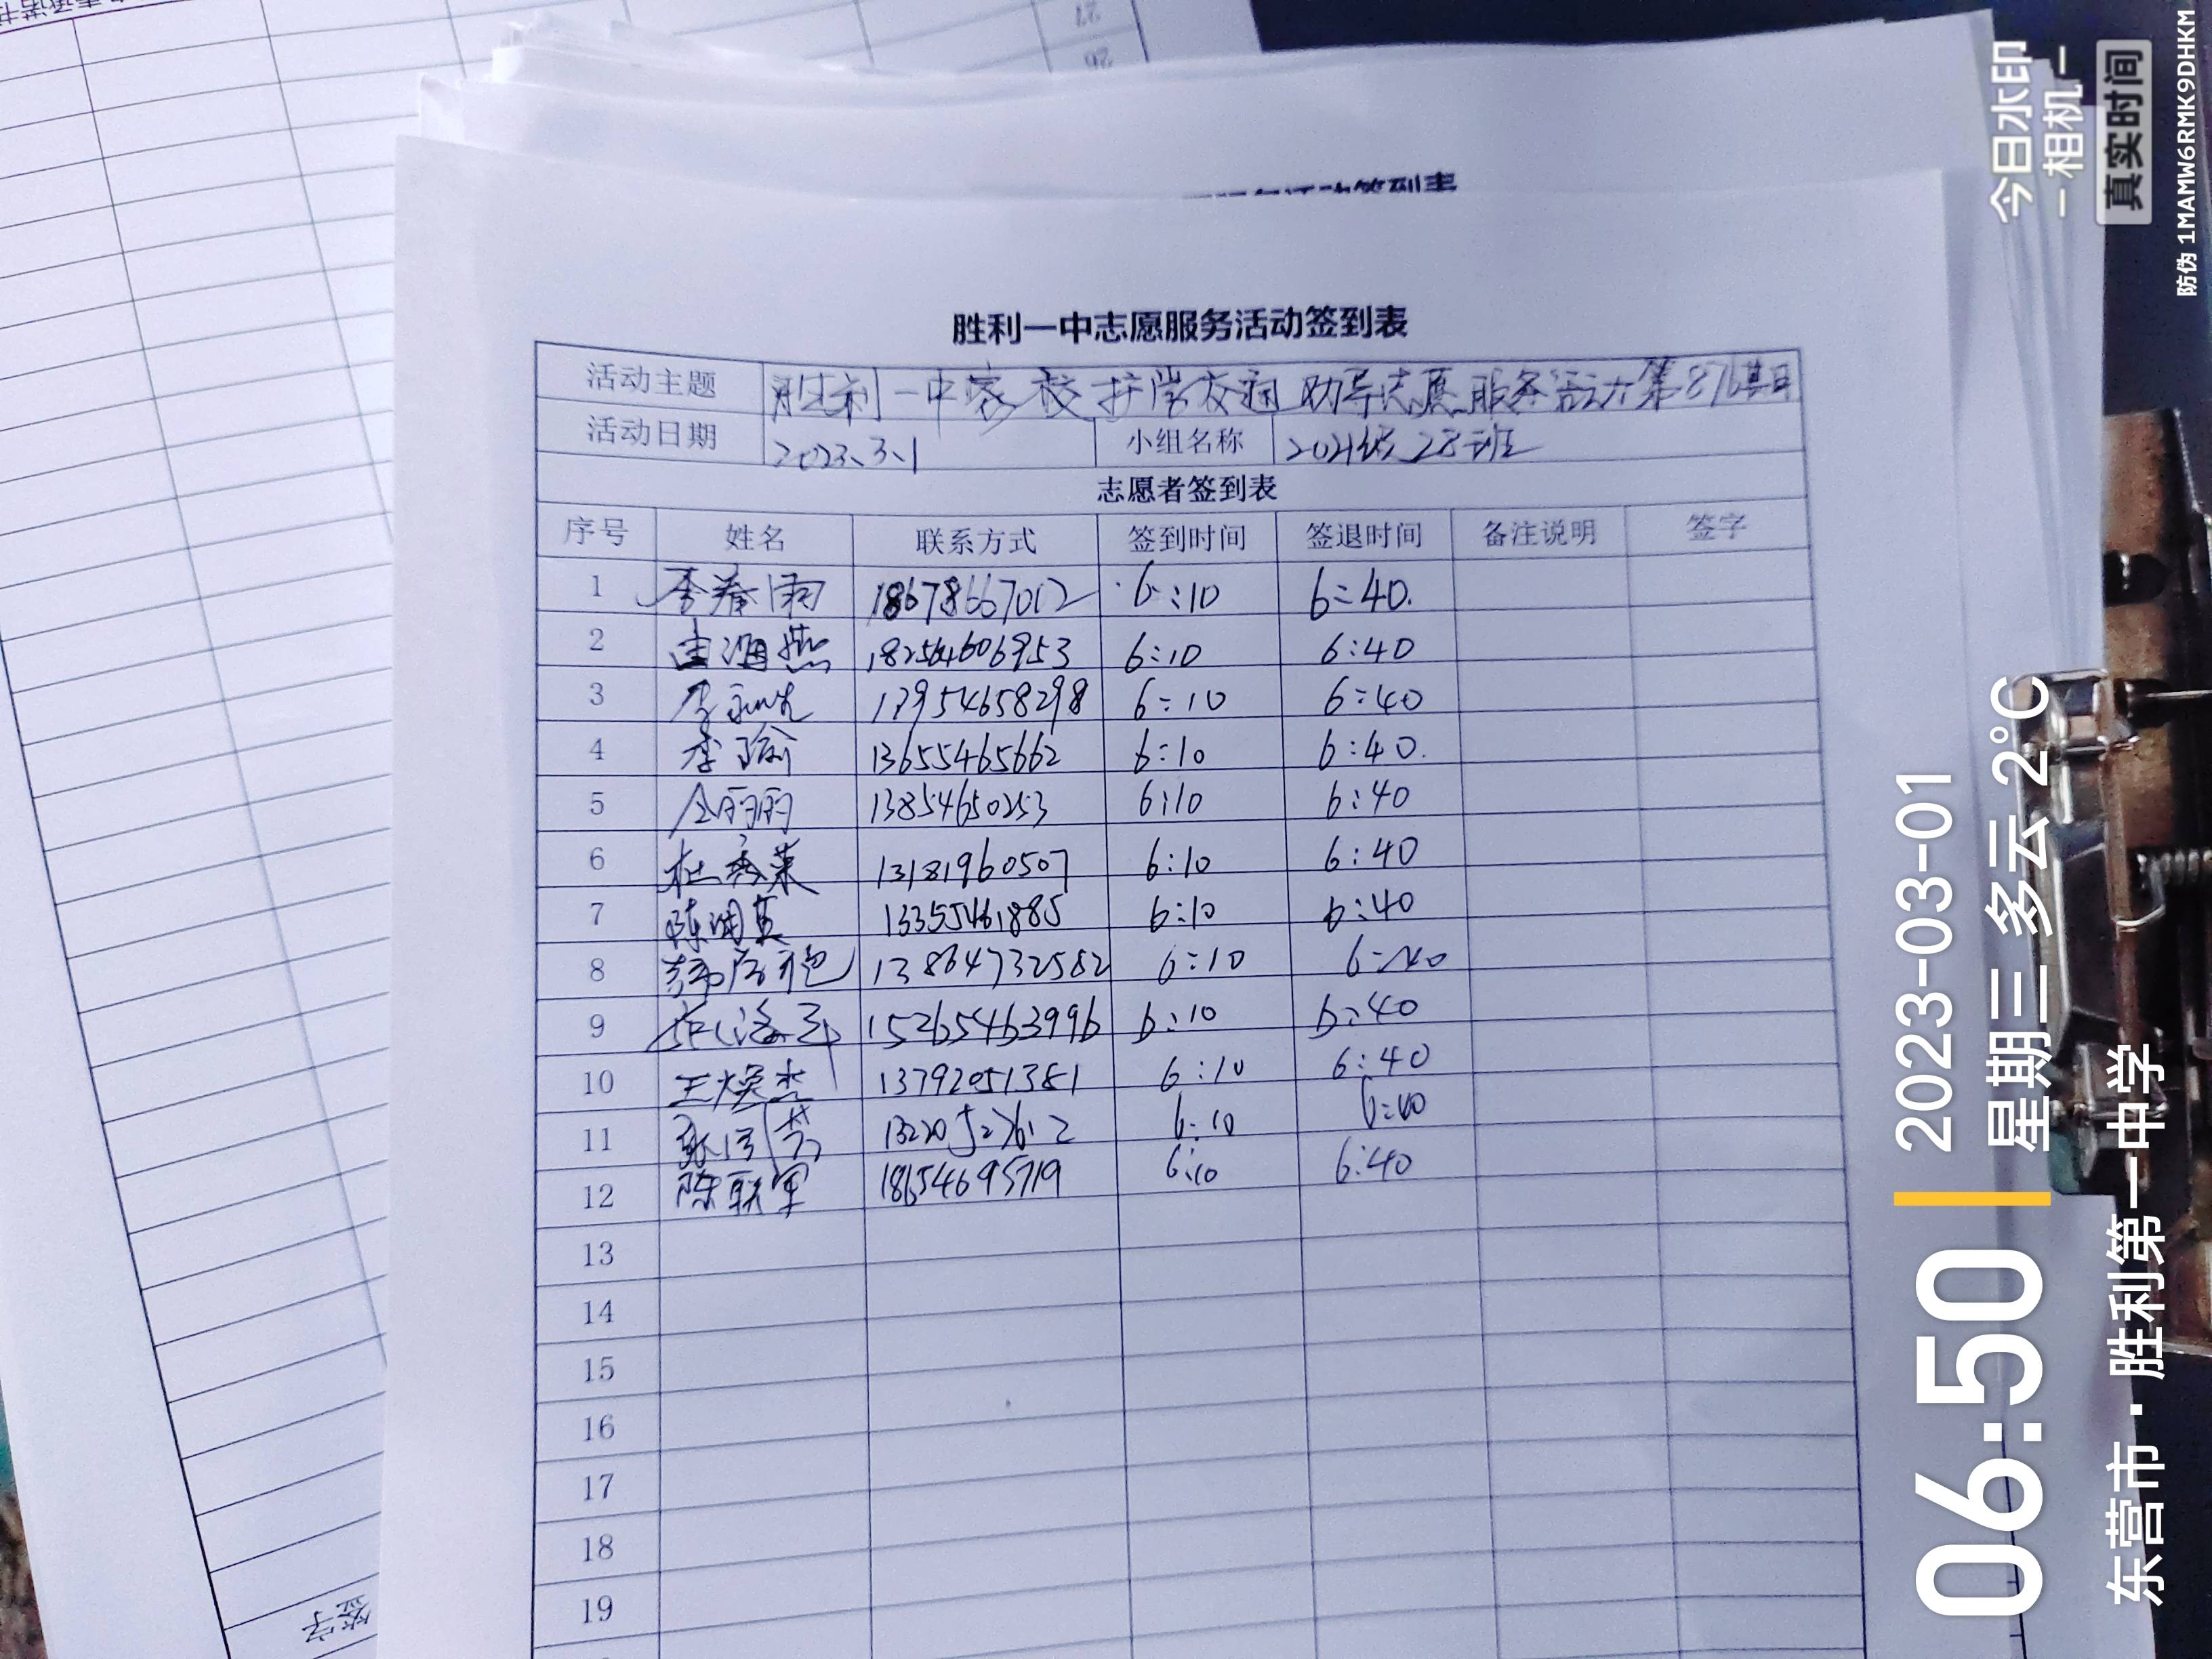 胜利一中志愿服务活动签到表
活动主题 胜利一中家校护学交通劝导志愿服务活动第876期
活动日期 2023.3.1 小组名称 2021级28班
志愿者签到表
序号 姓名 联系方式 签到时间 签退时间 备注说明 签字
1 李春雨 18678667012 6:10 6:40.
2 18254606953 6:10 6:40
3 李 13954658298 6:10 6:40
4 李瑜 13655465662 6:10 6:40.
5 丽丽 13854650253 6:10 6:40
6 杜秀荣 13181960507 6:10 6:40
7 陈 13355461885 6:10 6:40
8 13864732582 6:10 6:40
9 15265463996 6:10 6:40
10 王焕杰 13792051381 6:10 6:40
11 6:10 6:40
12 陈联军 18654695719 6:10 6:40
13
14
15
16
17
18
19
签字
今日水印
-相机-
真实时间
防伪 1MAMW6RMK9DHKM
06:50
2023-03-01
星期三 多云 2°C
东营市·胜利第一中学